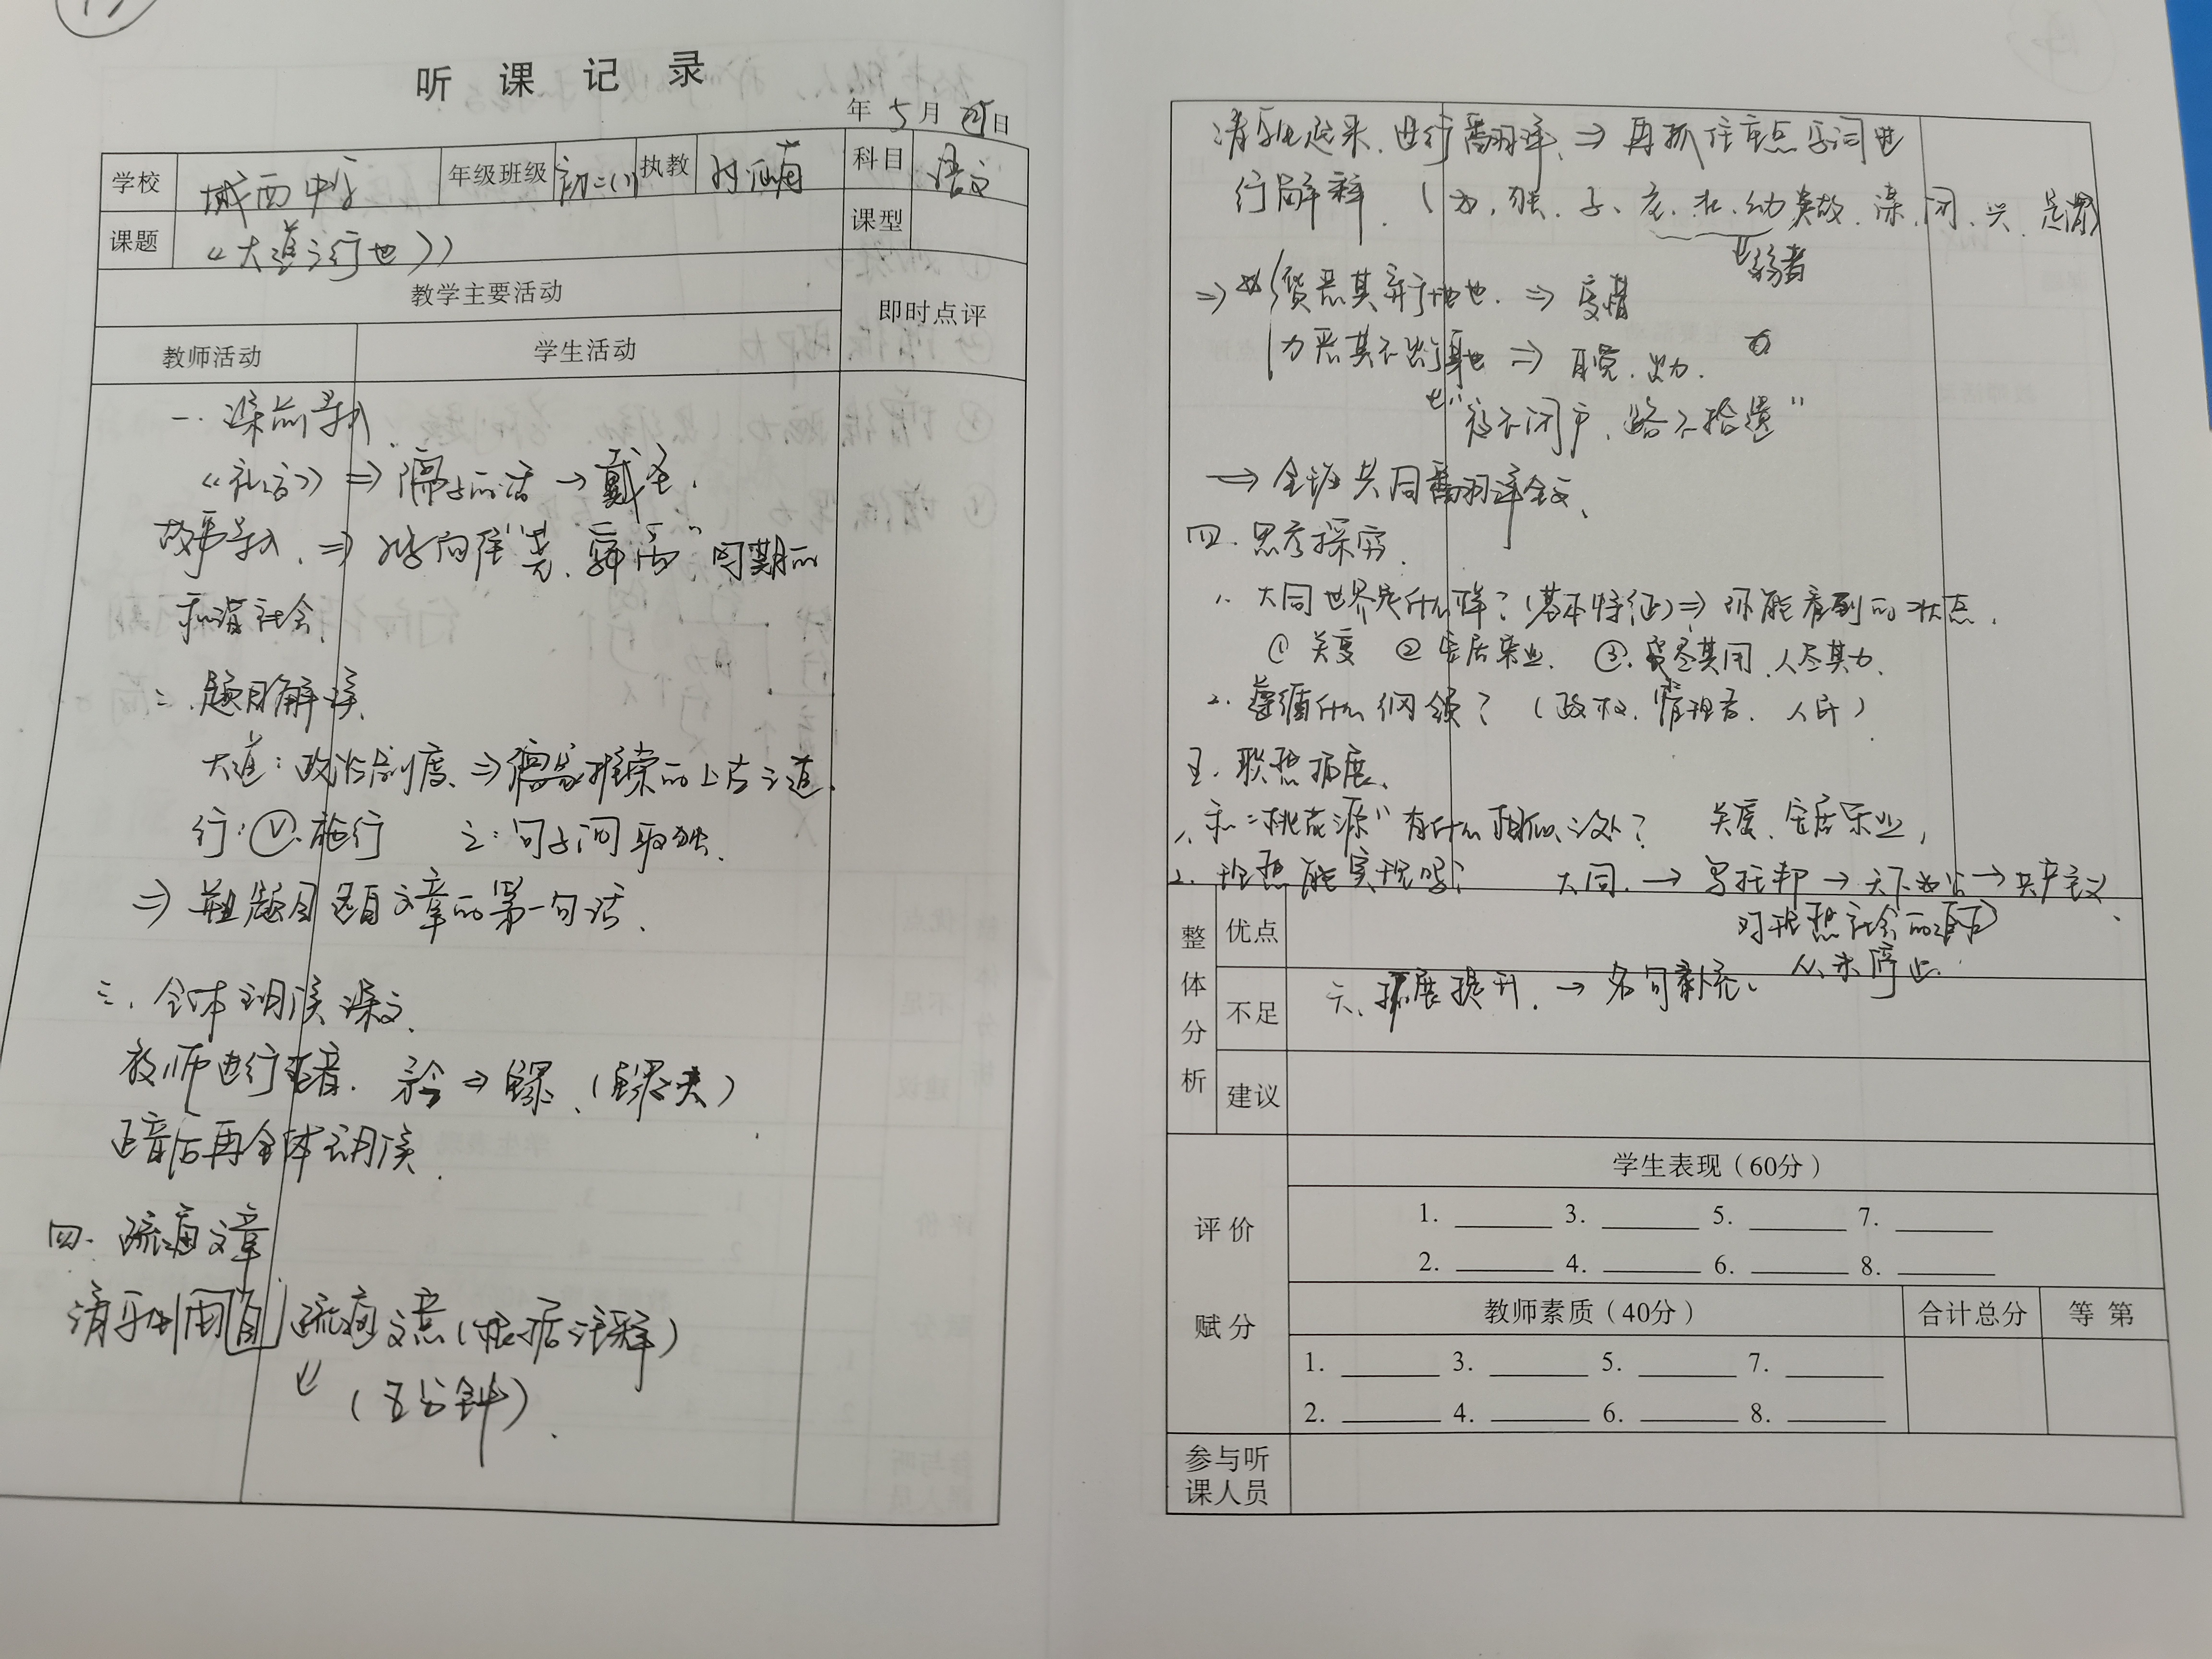 听课记录
年 5 月 日
学校 城西中学 年级班级 初二(1) 执教 科目 语文
课题 《大道之行也》 课型
教学主要活动 即时点评
教师活动 学生活动
一、课前导入
《礼记》⇒ 儒家的话 → 戴圣、
故事导入、⇒ 向往"尧、舜、禹"时期的
和谐社会、
二、题目解读、
大道:政治制度、⇒ 儒家推崇的上古之道、
行:Ⓥ、施行 之:句子间取独、
⇒ 题目选自文章的第一句话、
三、全体朗读课文、
教师进行正音、矜 ⇒ 鳏、(鳏夫)
正音后再全体朗读、
四、疏通文章
请学生用自疏通文意(根据注释)
(五分钟)、
请学生起来、进行翻译、⇒ 再抓住重点字词进
行解释、(为、独、子、老、壮、幼、故、谋、闭、兴、是谓)
弱者
⇒ 货恶其弃于地也、⇒ 爱惜
力恶其不出于身也 ⇒ 自觉、出力、
"夜不闭户、路不拾遗"
→ 全班共同翻译全文、
四、思考探究、
1、大同世界是什么样?(基本特征)⇒ 你能看到的状态、
① 关爱 ② 安居乐业、 ③、货尽其用、人尽其力、
2、遵循什么纲领?(政权、管理者、人民)
五、联想拓展、
1、和"桃花源"有什么相似之处? 关爱、安居乐业,
2、理想能实现吗? 大同、→ 乌托邦 → 天下为公 → 共产主义、
对理想社会的追求
从未停止
整体分析 优点
不足 六、拓展提升、→ 名句补充、
建议
评价赋分 学生表现(60分)
1. 3. 5. 7.
2. 4. 6. 8.
教师素质(40分) 合计总分 等第
1. 3. 5. 7.
2. 4. 6. 8.
参与听课人员